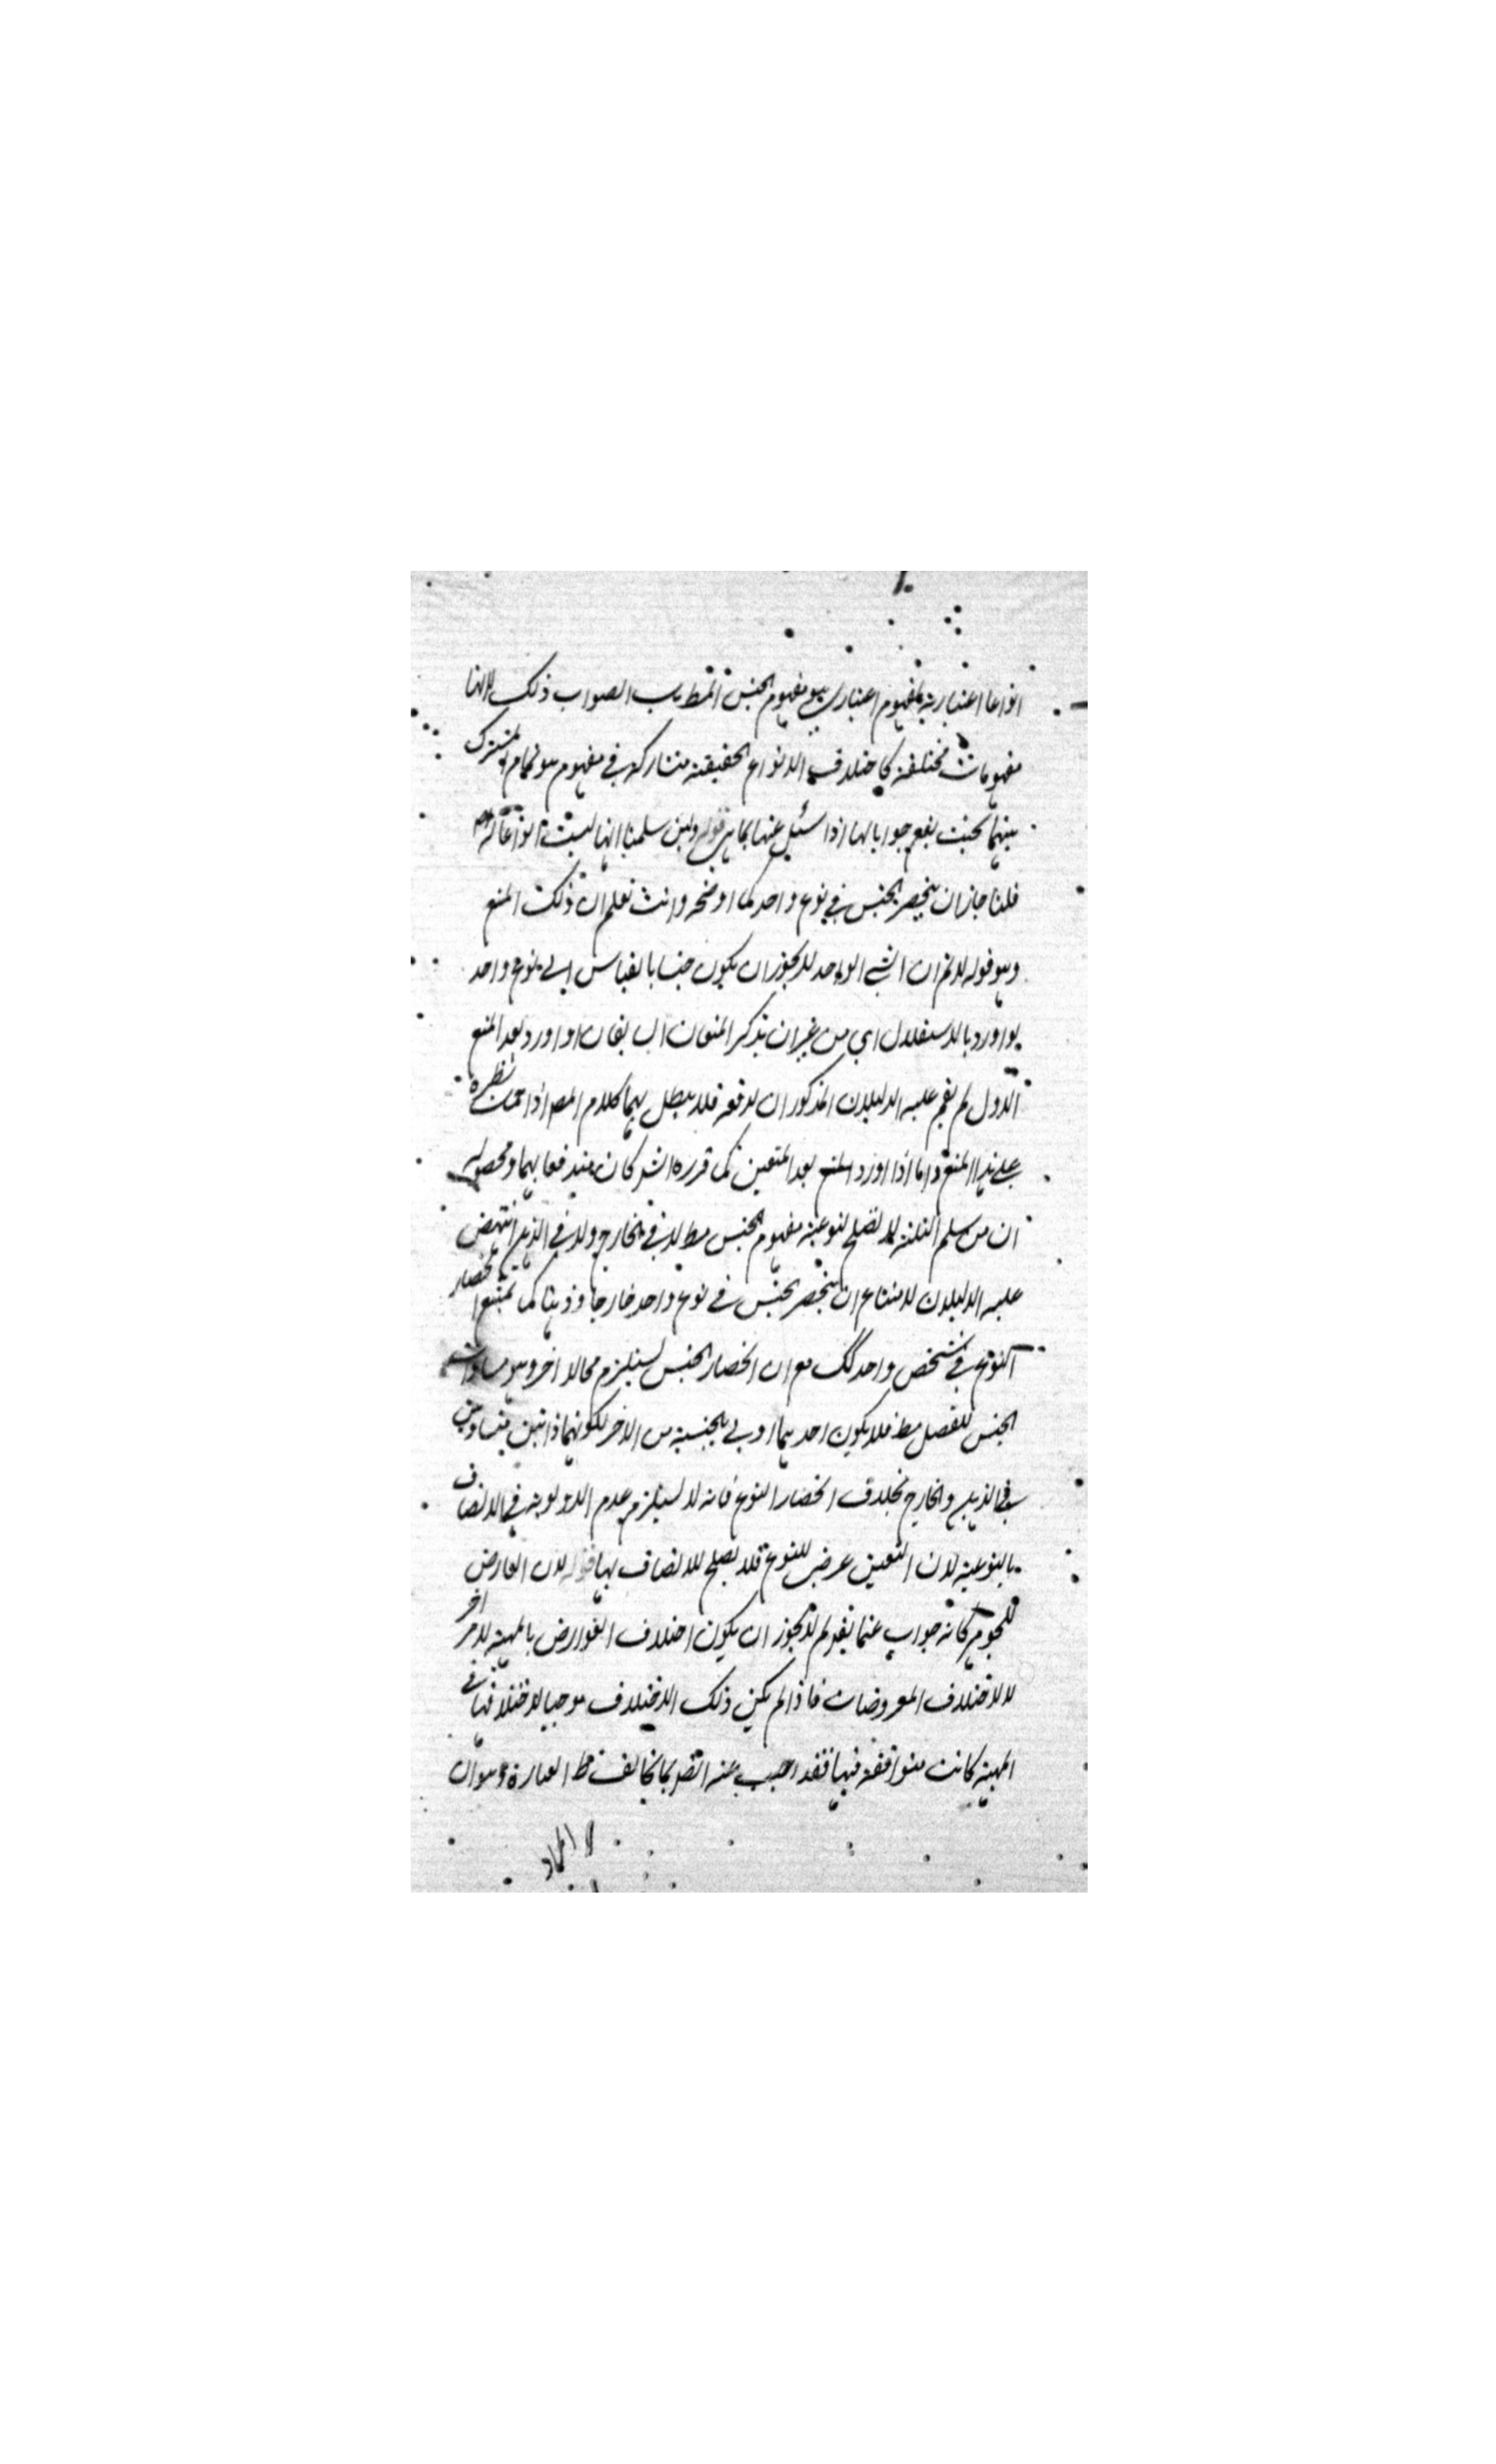 انواعا اعتبارية لمفهوم اعتباري هو مفهوم الجنس المط بل الصواب ذلك لانها
مفهومات مختلفة كاختلاف الانواع الحقيقية متشاركة في مفهوم هو تمام المشترك
بينهما بحيث يقع جوابا لها اذا سئل عنها بما هي قوله ولئن سلمنا انها ليست انواعا له
قلنا جاز ان ينحصر الجنس في نوع واحد كما اوضحه وانت تعلم ان ذلك المنع
وهو قوله لانم ان الشي الواحد لا يجوز ان يكون جنسا بالقياس الى نوع واحد
لو اورد بالاستقلال اي من غير ان يذكر المنعان السابقان او اورد بعد المنع
الاول لم يقم عليه الدليلان المذكوران لدفعه فلا يبطل بهما كلام المص اذا حمل نظره
على هذا المنع واما اذا اورد المنع بعد المنعين كما قرره الش كان مندفعا بهما ومحصوله
ان من سلم الثلثة لا تصلح لنوعية مفهوم الجنس مط لا في الخارج ولا في الذهن انتهض
عليه الدليلان لامتناع ان ينحصر الجنس في نوع واحد خارجا وذهنا كما يمتنع انحصار
النوع في شخص واحد كك مع ان انحصار الجنس يستلزم محالا اخر وهو مساواة
الجنس للفصل مط فلا يكون احدهما اولى بالجنسية من الاخر لكونهما ذاتيين متساويين
في الذهن والخارج بخلاف انحصار النوع فانه لا يستلزم عدم الاولوية في الاتصاف
بالنوعية لان التعين عرض للنوع فلا يصلح للاتصاف بها قوله لان العارض
للجوهر كانه جواب عما يقال لم لا يجوز ان يكون اختلاف العوارض بالمهية لامر اخر
لا لاختلاف المعروضات فاذا لم يكن ذلك الاختلاف موجبا لاختلافها في
المهية كانت متوافقة فيها فقد اجيب عنه بما يخالف ظ العبارة وهو ان